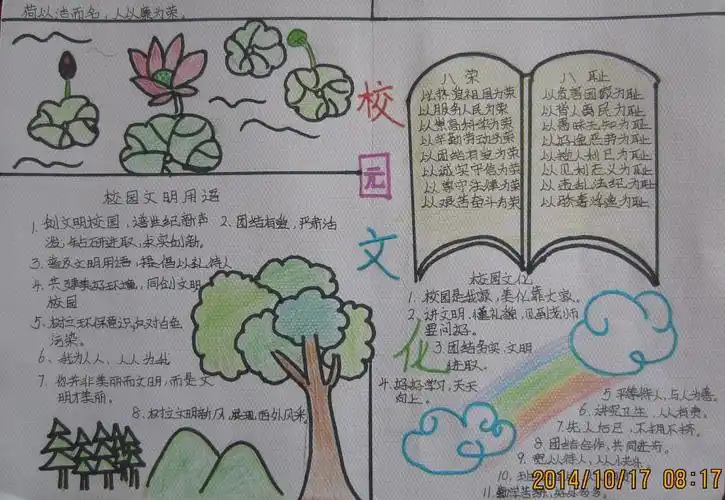 荷以洁而名，人以廉为荣。
校园文化
八荣
以热爱祖国为荣
以服务人民为荣
以崇尚科学为荣
以辛勤劳动为荣
以团结互助为荣
以诚实守信为荣
以遵守法律为荣
以艰苦奋斗为荣
八耻
以危害国家为耻
以背人离民为耻
以愚昧无知为耻
以好逸恶劳为耻
以损人利己为耻
以见利忘义为耻
以违乱法纪为耻
以骄奢淫逸为耻
校园文明用语
1、创文明校园，造世纪新声
2、团结有勤，严肃活
泼，钻研进取，求实创新。
3、普及文明用语，提倡以礼待人
4、共建美好环境，同创文明
校园
5、树立环保意识，反对白色
污染。
6、我为人人，人人为我
7、你并非美丽而文明，而是文
明才美丽。
8、树立文明新风，展现
校园文化
1、校园是我家，美化靠大家。
2、讲文明，懂礼貌，见到老师
要问好。
3、团结务实，文明
进取。
4、好好学习，天天
向上。
5、平等待人，与人为善。
6、讲究卫生，人人有责。
7、先人后己，不损不挤。
8、团结合作，共同进步。
9、
10、
11、勤学苦练，
2014/10/17 08:17